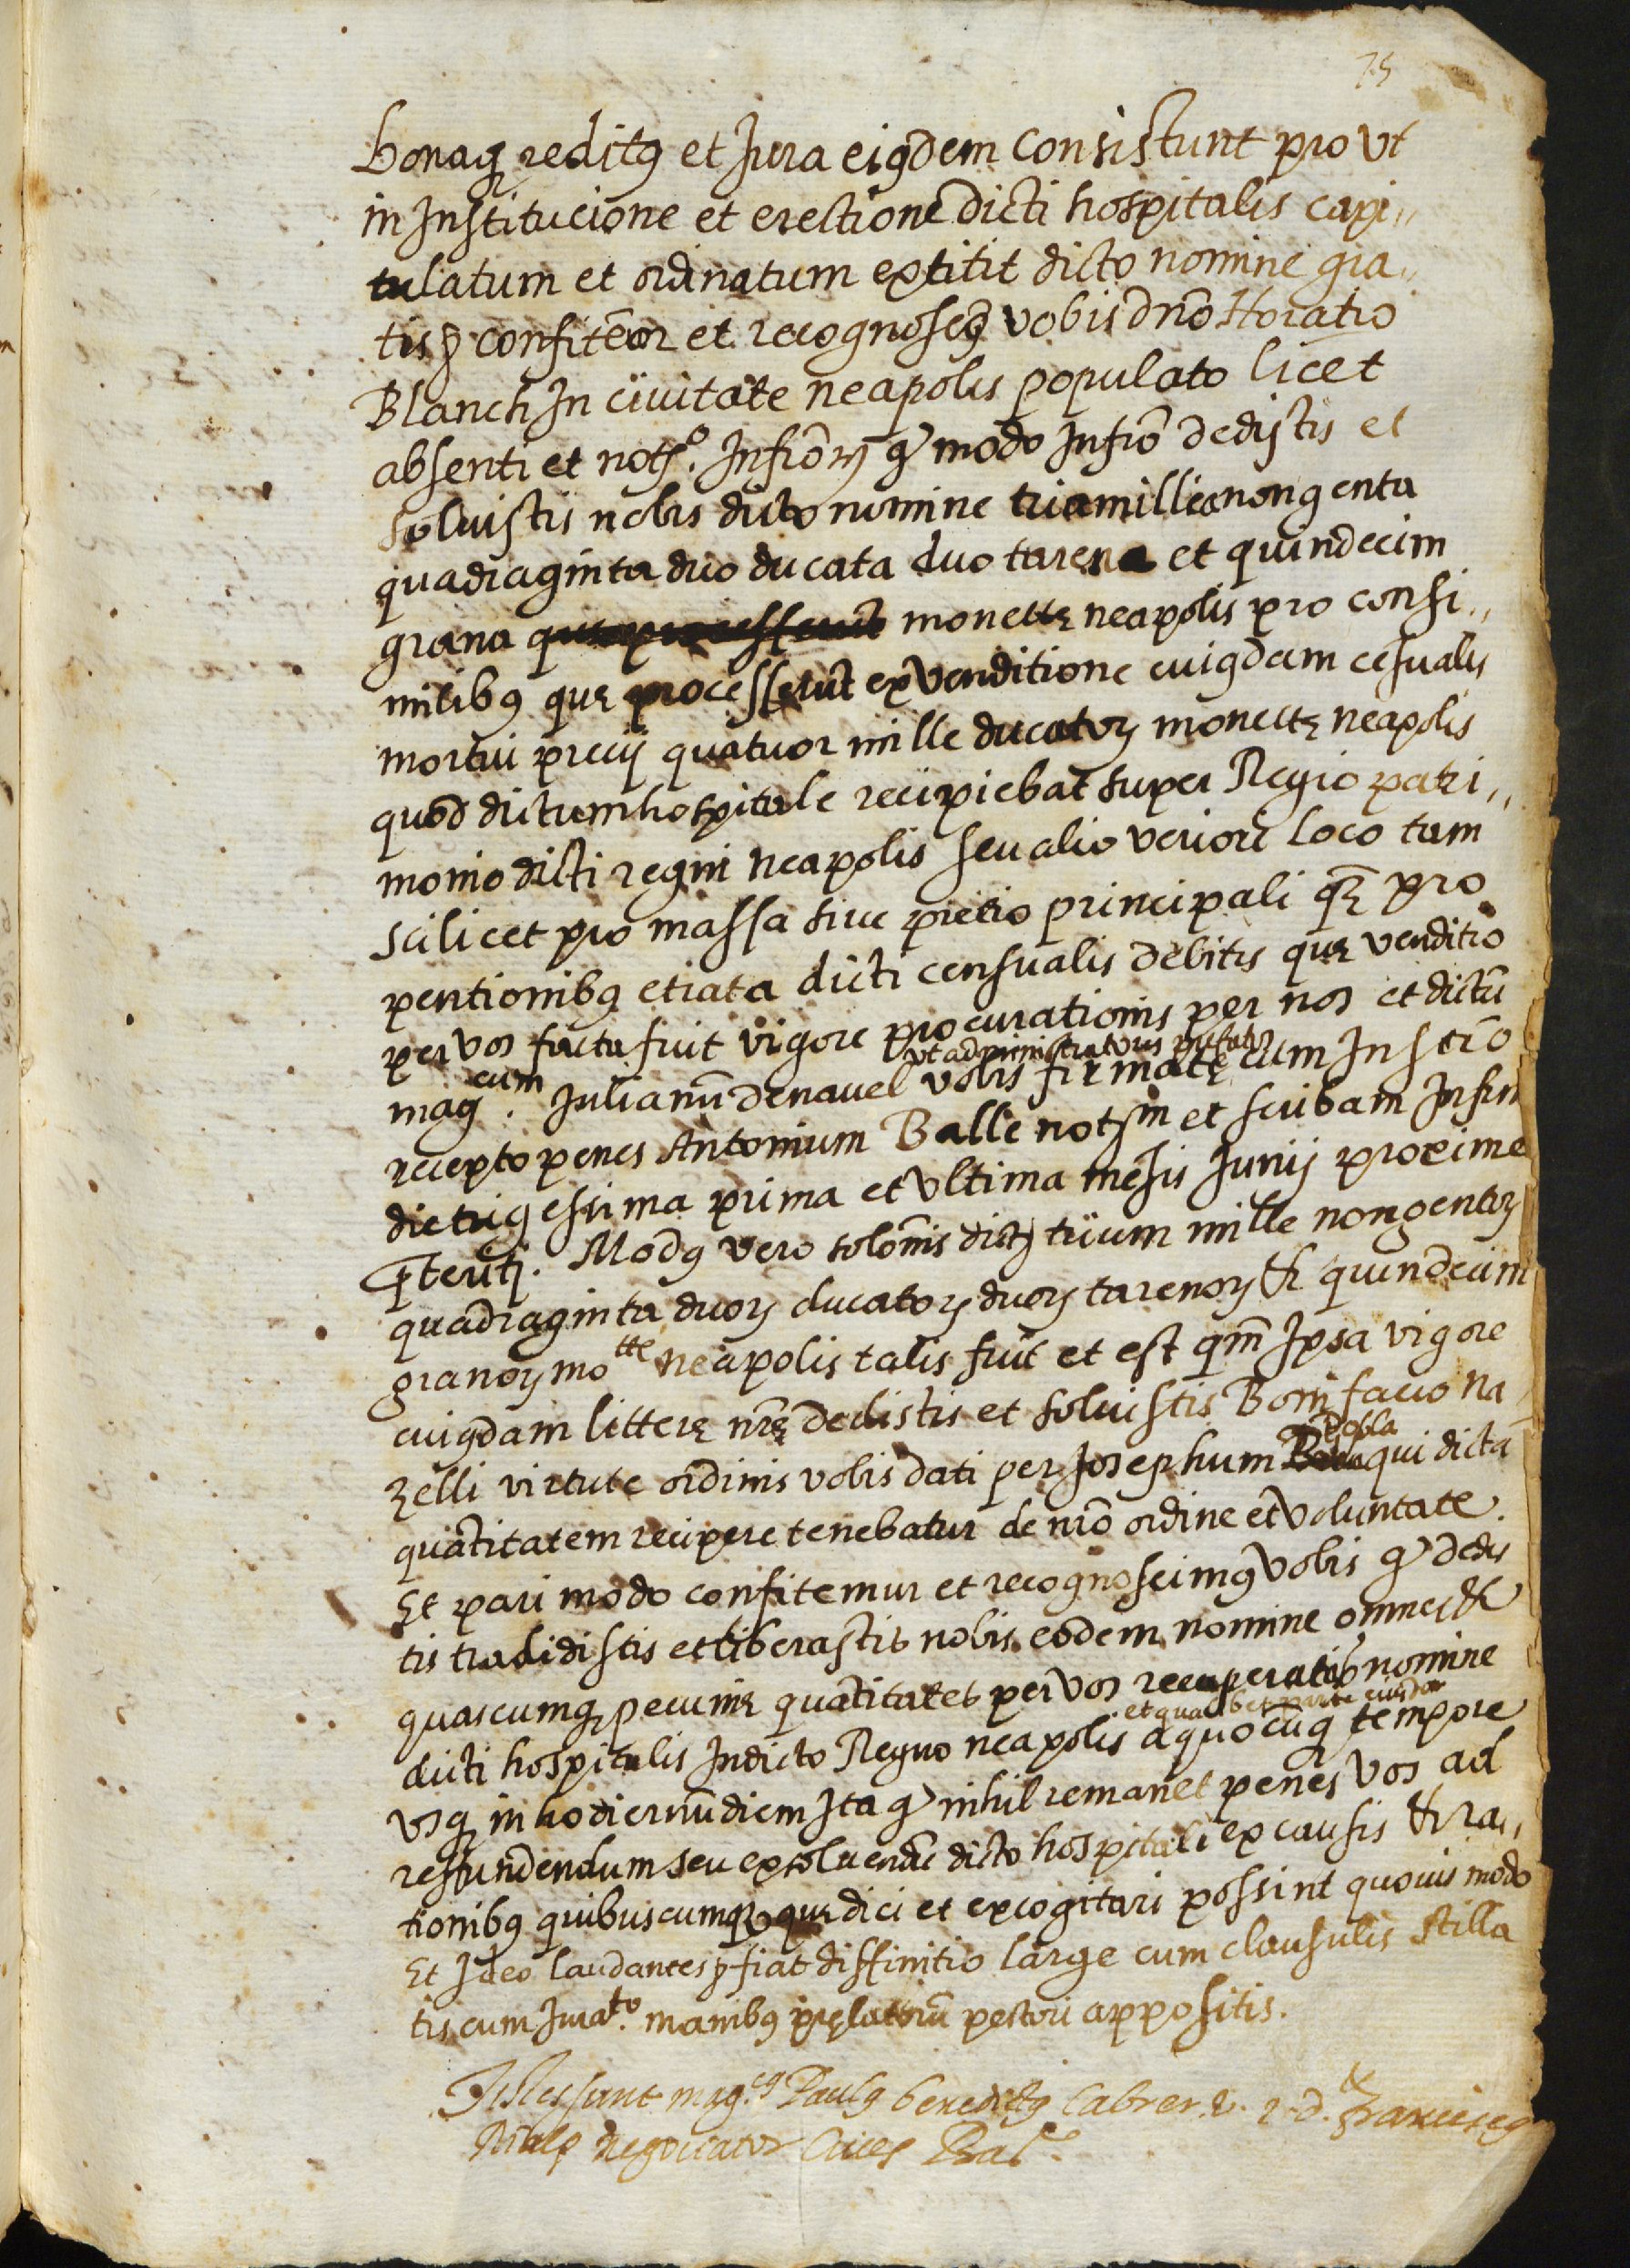 75
bonaq reditꝯ et Jura eiꝯdem consistunt pro vt
in Institucione et erectione dicti hospitalis capi,,
tulatum et ordinatum extitit dicto nomine gra,,
tis confiteor et recognosco vobis dno Horatio
Blanch In ciuitate neapolis populato licet
absenti et notº. Infro modo Infro dedistis et
soluistis nobis dicto nomine triamillia nongenta
quadraginta duo ducata duo tarena et quindecim
grana monette neapolis pro consi,,
milibꝯ quę processerut ex venditione cuiꝯdam cesualis
mortui precij quatuor mille ducatorꝫ monettę neapolis
quod dictum hospitale recipiebat super Regio patri,,
monio dicti regni neapolis seu alio veriori loco tam
scilicet pro massa siue pretio principali qz pro
pentionibꝯ et rata dicti censualis debitis quę venditio
per vos facta fuit vigore procurationis per nos et dictū
ut administratores prefatos
magcum. Julianū de nauel vobis firmatę cum Instro
recepto penes Antonium Balle notm et scribam Infrm
die trigessima prima et vltima mesis Junij proxime
pteriti. Modꝯ vero solonis dictꝫ trium mille nongentorꝫ
quadraginta duorꝫ ducatorꝫ duorꝫ tarenorꝫ & quindecim
granorꝫ motte neapolis talis fuit et est qm Ipsa vigore
cuiꝯdam litterę nrę dedistis et soluistis Bonifacio Na
zelli virtute ordinis vobis dati per Josephum Dobla qui dictā
quātitatem recipere tenebatur de nro ordine et voluntate.
Et pari modo confitemur et recognoscimꝯ vobis ꝙ dedis
tis tradidistis et liberastis nobis eodem nomine omnes &
quascumq pecunię quātitates per vos recuperatas nomine
et qualibet parte eiusdem
dicti hospitalis In dicto Regno neapolis a quocūq tempore
vsq in hodiernū diem Ita ꝙ nihil remanet penes vos ad
refundendum seu exsoluendū dicto hospitali ex causis & ra,,
tionibꝯ quibuscumq quę dici et excogitari possint quouis modo
Et Ideo laudantes fiat diffinitio large cum clausulis stilla
tis cum Jurato. manibꝯ pręlatorū pectori appositis.
Testes sunt magcꝯ Paulꝯ benedictꝯ Cabrer & Franciscꝯ
Rialp negociator Ciues Bar.